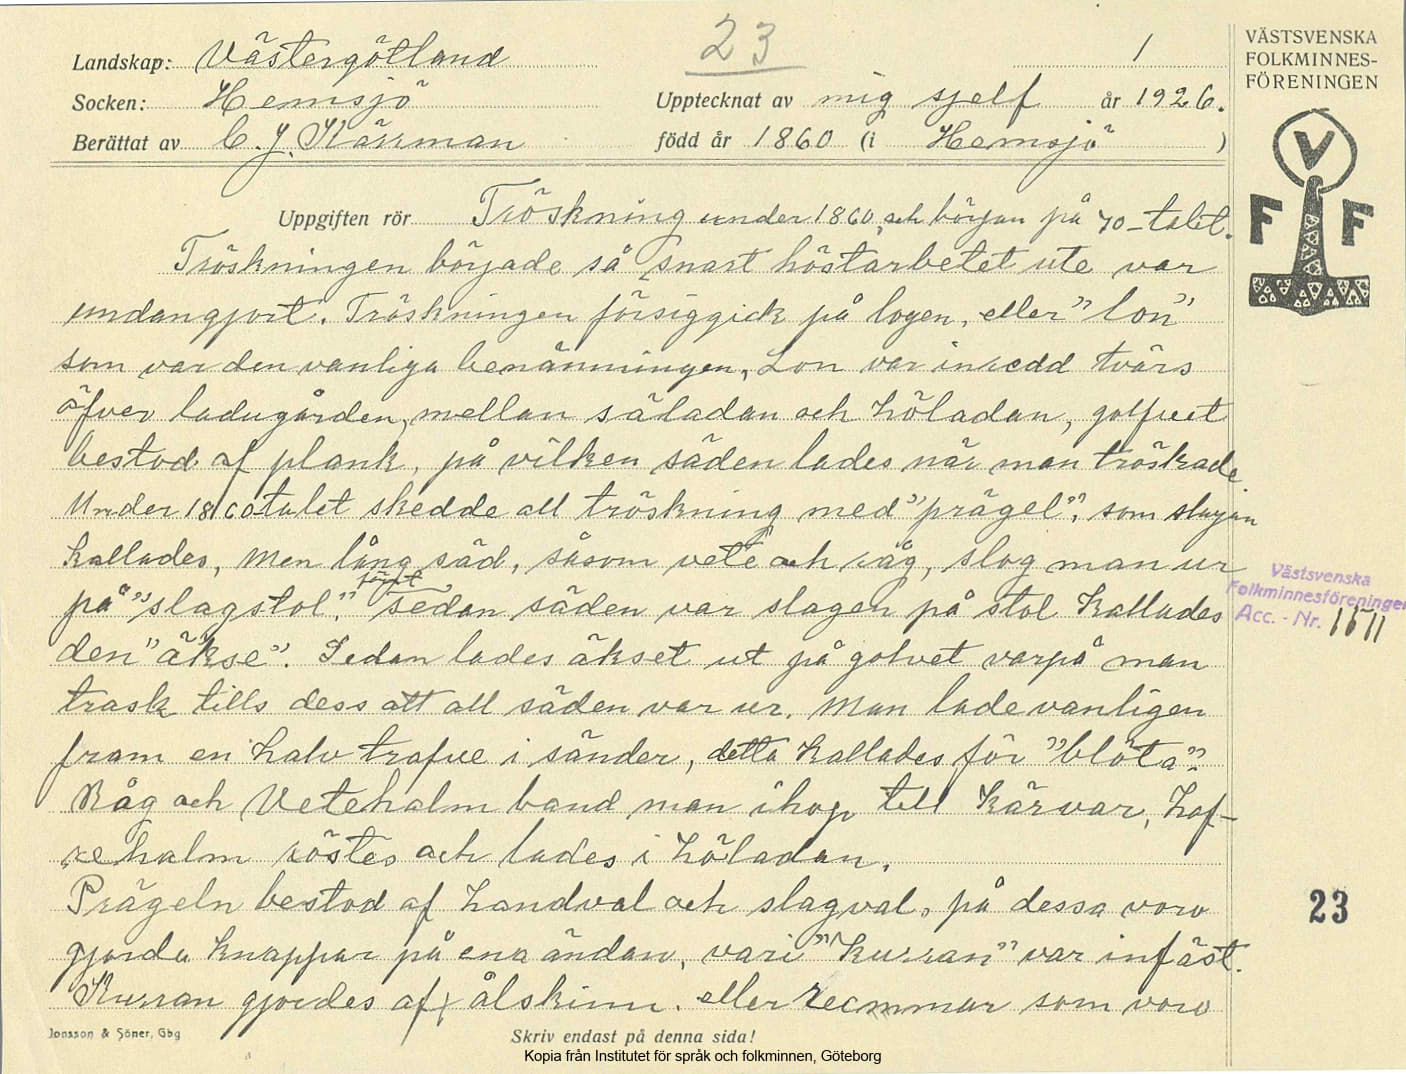 23
1
Landskap: Västergötland
Socken: Hemsjö
Upptecknat av mig sjelf år 1926.
Berättat av C. J. Kärrman
född år 1860 (i Hemsjö )
VÄSTSVENSKA
FOLKMINNES-
FÖRENINGEN
V
F F
Uppgiften rör Tröskning under 1860, och början på 70-talet.
Tröskningen började så snart höstarbetet ute var
undangjort. Tröskningen försiggick på logen, eller "lon"
som var den vanliga benämningen, Lon var inredd tvärs
öfver ladugården, mellan säladan och höladan, golfvet
bestod af plank, på vilken säden lades när man tröskade.
Under 1860talet skedde all tröskning med "prägel", som slagan
kallades, Men lång säd, såsom vete och råg, slog man ur
först
på "slagstol". Sedan säden var slagen på stol kallades
den "äkse". Sedan lades äkset ut på golvet varpå man
trask tills dess att all säden var ur. Man lade vanligen
fram en halv trafve i sänder, detta kallades för "blöta".
Råg och Vetehalm band man ihop till kärvar, haf-
rehalm röstes och lades i höladan.
Prägeln bestod af handval och slagval, på dessa voro
gjorda knappar på ena ändan, vari "kurran" var infäst.
Kurran gjordes af ålskinn. eller remmar som voro
Västsvenska
Folkminnesföreningen
Acc. - Nr. 1511
23
Jonsson & Söner, Gbg
Skriv endast på denna sida!
Kopia från Institutet för språk och folkminnen, Göteborg